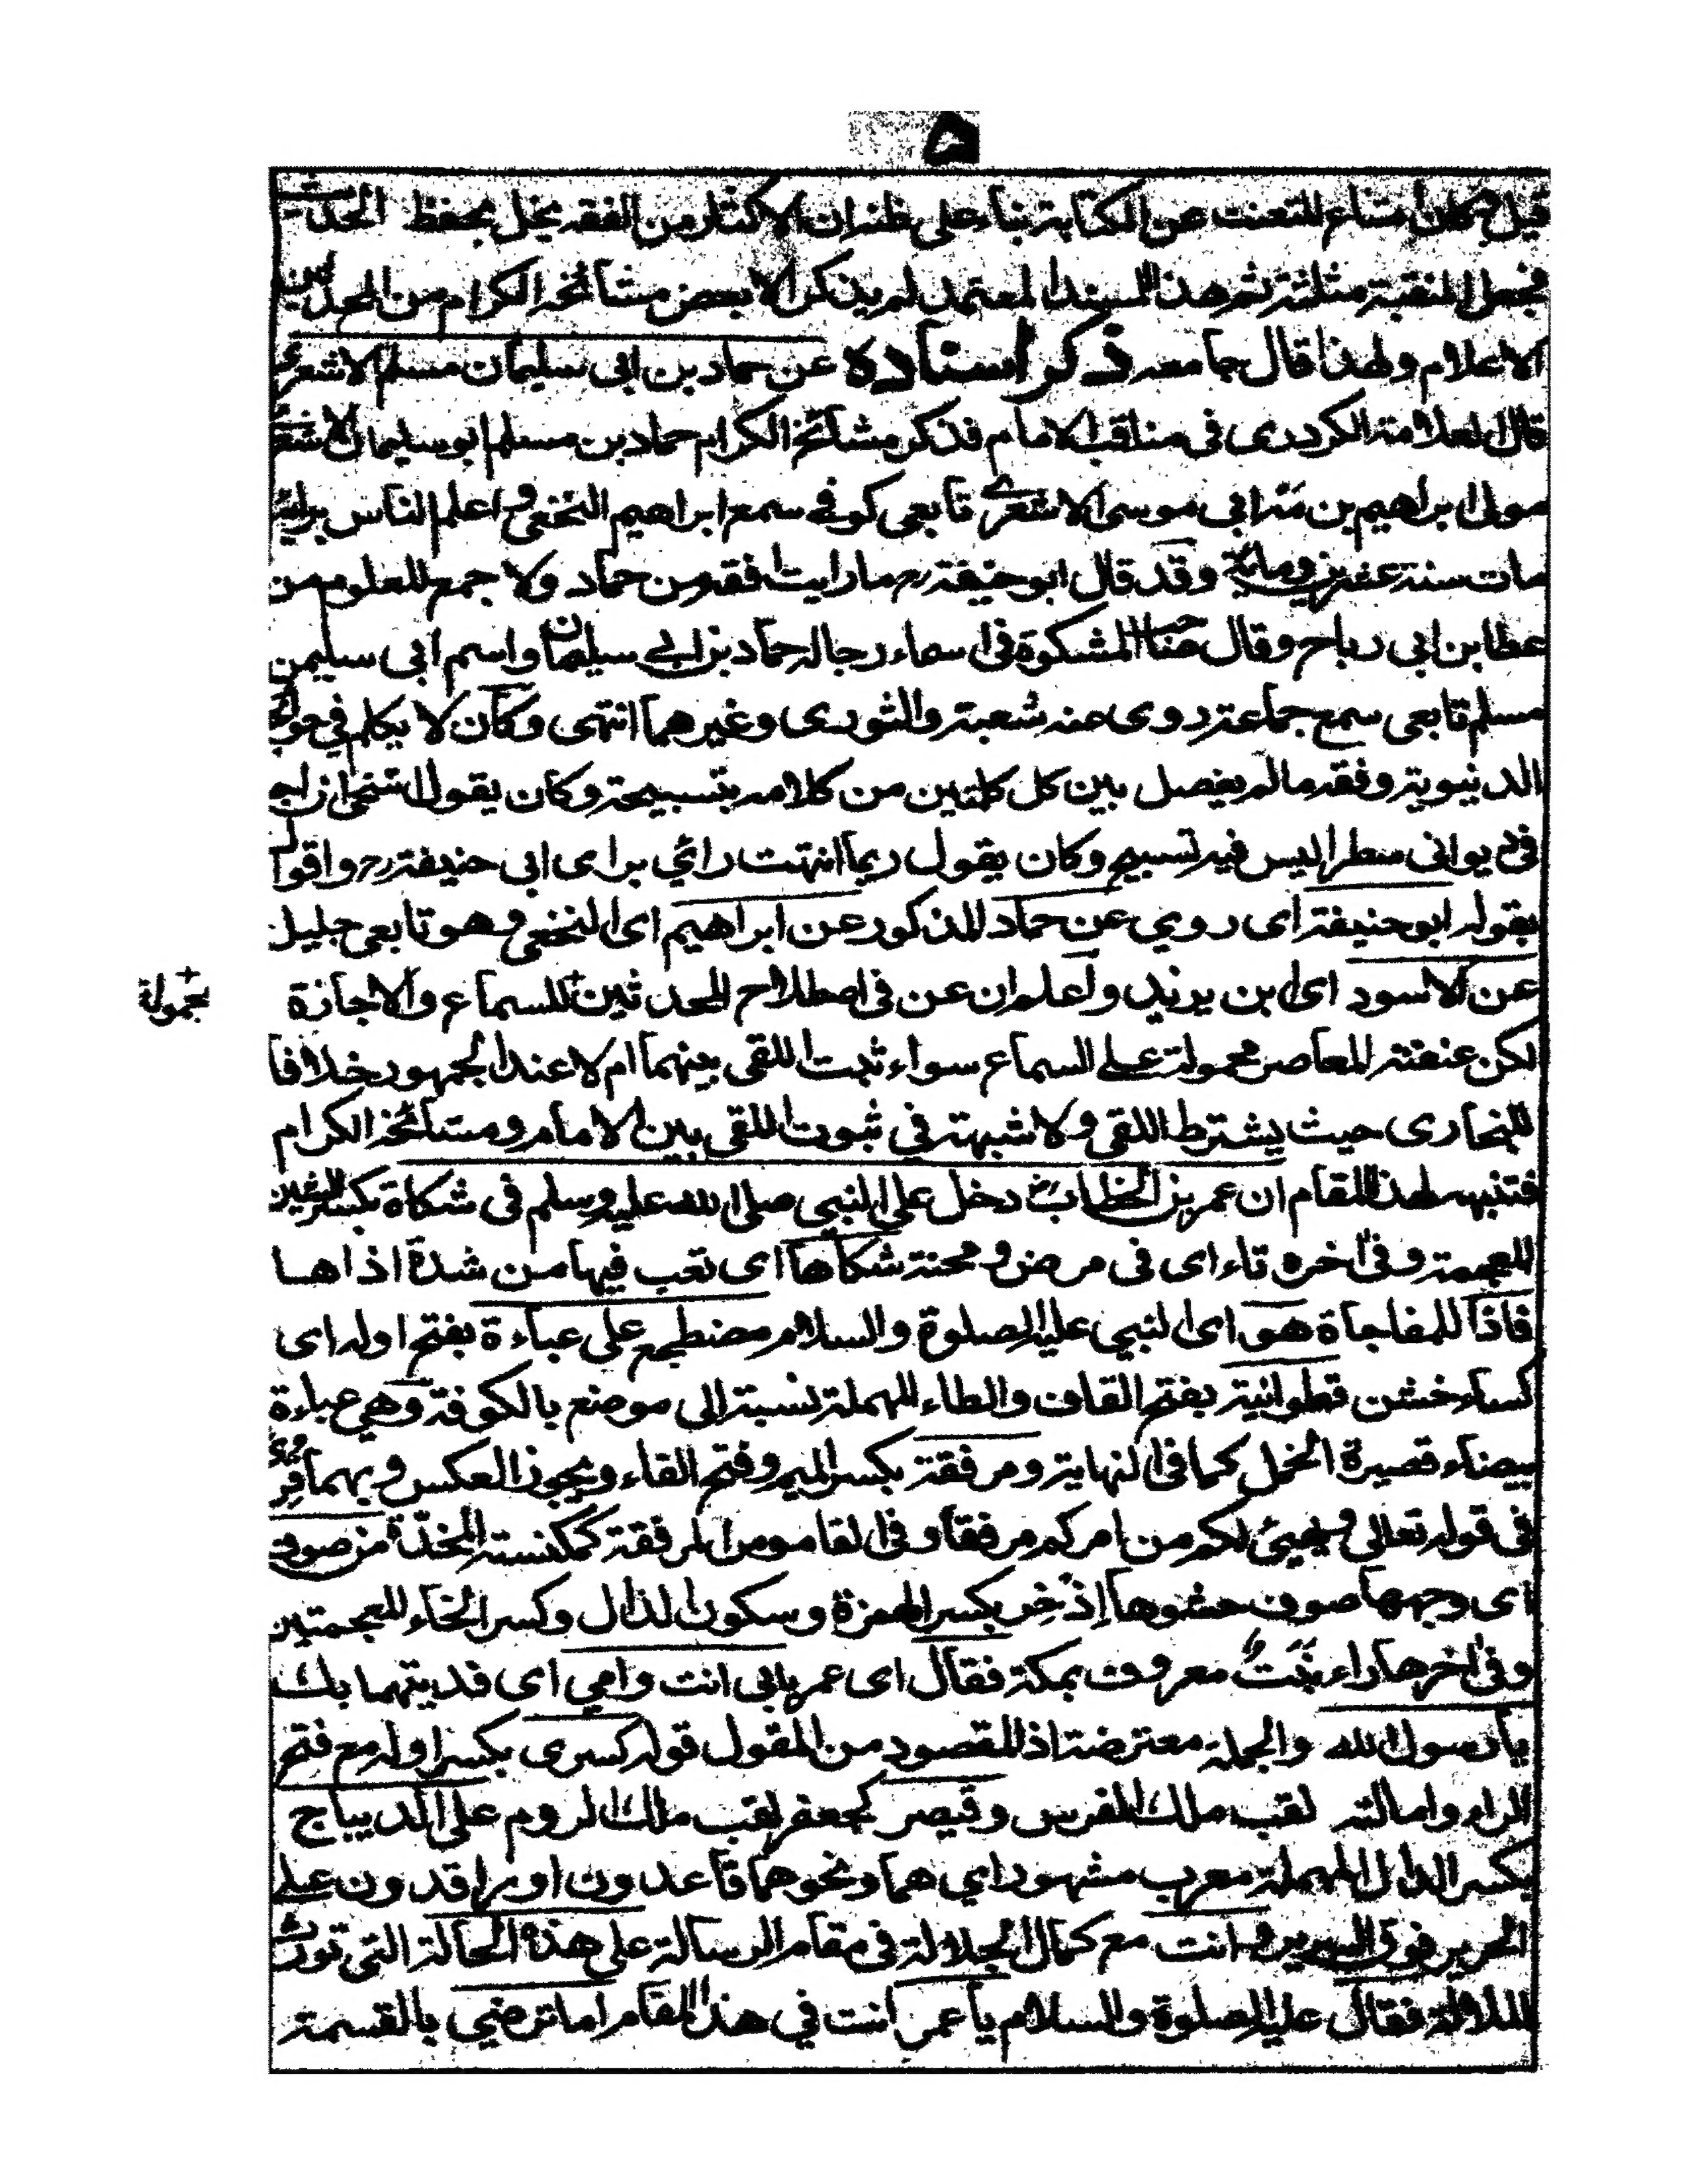 ٥
قيل كان امتناع للتعنت عن الكتابة بناء على ظنه ان الاكثار من الفقه يخل بحفظ الحديث
فجعل المنقبة مثلثة ثم هذا المسند المعتمد لم يذكر الا بعض مشائخه الكرام من المحدثين
الاعلام ولهذا قال جامعه ذكر اسناده عن حماد بن ابى سليمان مسلم الاشعرى
قال العلامة الكردرى فى مناقب الامام فذكر مشائخه الكرام حماد بن مسلم ابو سليمان الاشعرى
مولى ابراهيم بن ابى موسى الاشعرى تابعى كوفى سمع ابراهيم النخعى و اعلم الناس برايه
مات سنة عشرين ومائة وقد قال ابو حنيفة رح ما رايت افقه من حماد ولا اجمع للعلوم من
عطا بن ابى رباح وقال صاحب المشكوة فى اسماء رجاله حماد بن ابى سليمان واسم ابى سليمن
مسلم تابعى سمع جماعة روى عنه شعبة والثورى وغيرهما انتهى وكان لا يكلم فى حوائج
الدنيوية وفقه مالم يفصل بين كل كلمتين من كلامه بتسبيحة وكان يقول استحى ان اجد
فى ديوانى سطرا ليس فيه تسبيح وكان يقول ربما انتهت رائى براى ابى حنيفة رح واقول
بقوله ابو حنيفة اى روى عن حماد المذكور عن ابراهيم اى النخعى وهو تابعى جليل
عن الاسود اى ابن يزيد واعلم ان عن فى اصطلاح المحدثين للسماع والاجازة
محمولة
لكن عنعنة المعاصر محمولة على السماع سواء ثبت اللقى بينهما ام لا عند الجمهور خلافا
للبخارى حيث يشترط اللقى ولا شبهة فى ثبوت اللقى بين الامام ومشائخه الكرام
فتنبه لهذا المقام ان عمر بن الخطاب رض دخل على النبى صلى الله عليه وسلم فى شكاة بكسر الشين
المعجمة وفى اخره تاء اى فى مرض و محنة شكاها اى تعب فيها من شدة اذاها
فاذا للمفاجاة هو اى النبى عليه الصلوة والسلام مضطجع على عباءة بفتح اوله اى
كساء خشن قطوانية بفتح القاف والطاء المهملة نسبة الى موضع بالكوفة وهى عباءة
بيضاء قصيرة الخمل كما فى النهاية ومرفقة بكسر الميم وفتح الفاء ويجوز العكس وبهما قرئ
فى قوله تعالى ويهيئ لكم من امركم مرفقا وفى القاموس المرفقة كمكنسة المخدّة من صوف
اى وجهها صوف حشوها إذخِر بكسر الهمزة وسكون الذال وكسر الخاء المعجمتين
وفى اخرها راء نبتٌ معروف بمكة فقال اى عمر بابى انت وامى اى فديتهما بك
يا رسول الله والجملة معترضة اذ المقصود من المقول قوله كسرى بكسر اوله مع فتح
الراء وامالته لقب ملك الفرس وقيصر كجعفر لقب ملك الروم على الديباج
بكسر الدال المهملة معرب مشهور اى هما ونحوهما قاعدون او راقدون على
الحرير فوق السرير وانت مع كمال الجلالة فى مقام الرسالة على هذه الحالة التى تورث
الملالة فقال عليه الصلوة والسلام يا عمر انت فى هذا المقام اما ترضى بالقسمة